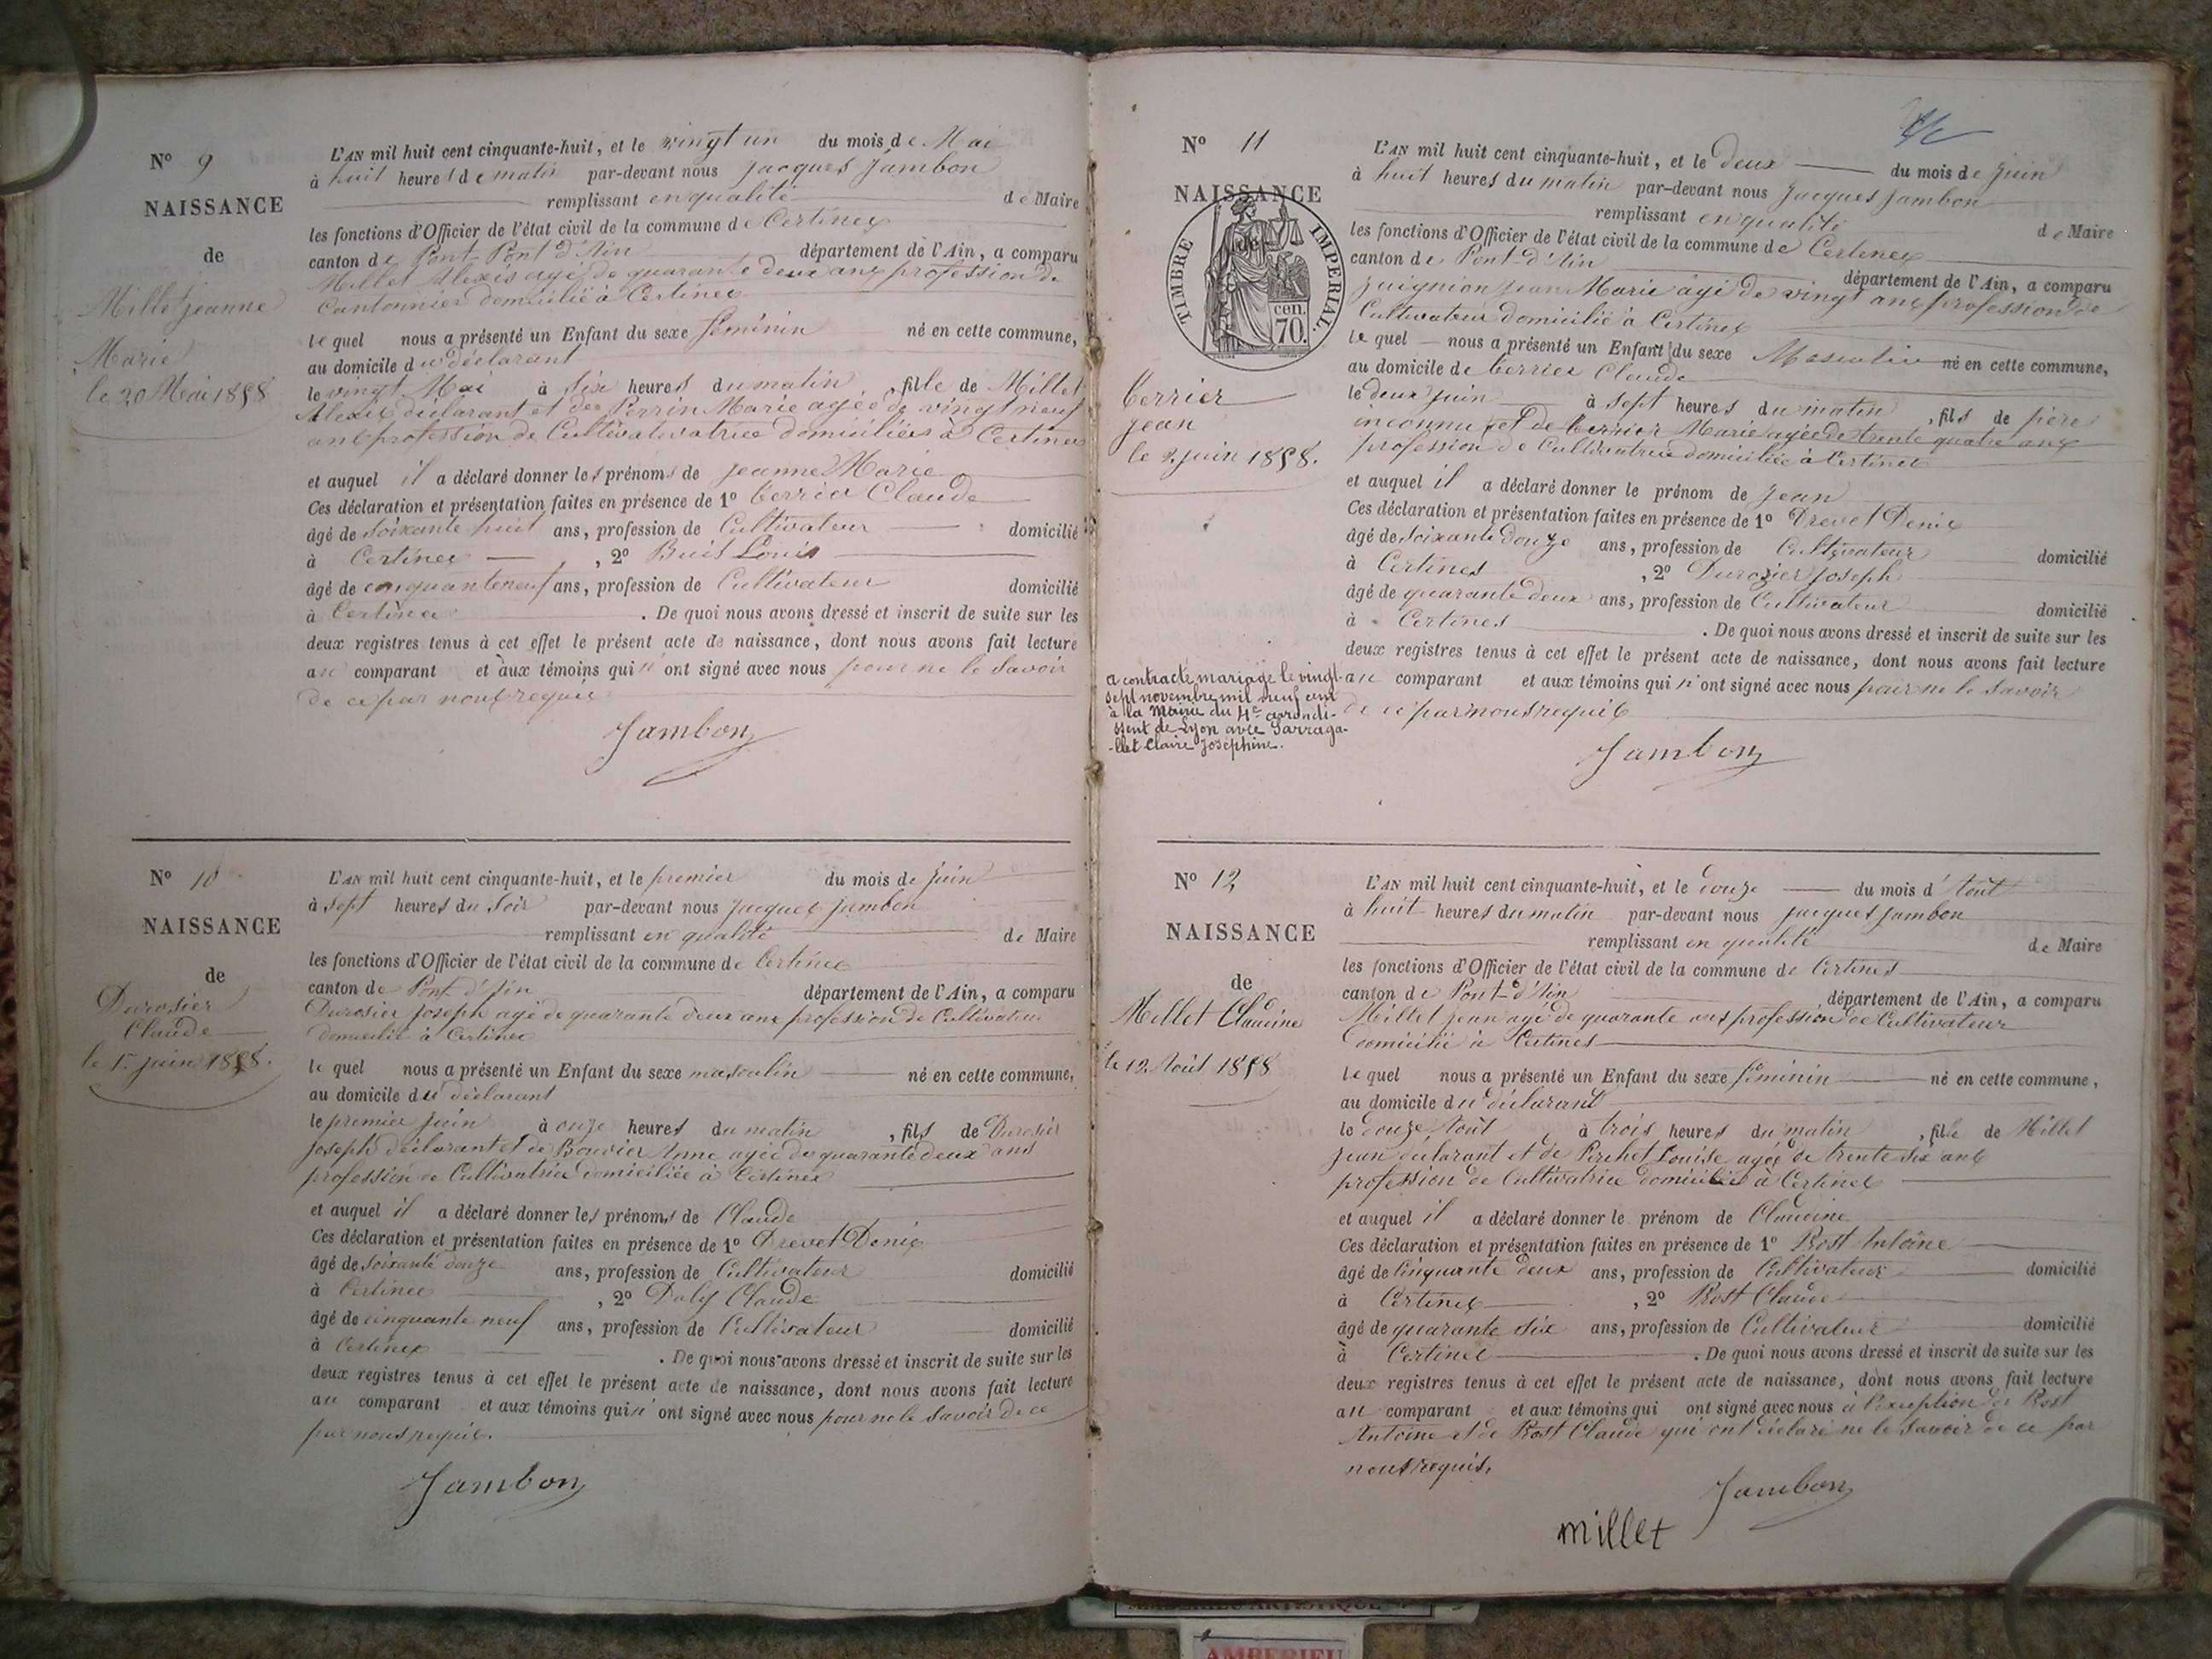 N° 9
NAISSANCE
de
Millet Jeanne
Marie
le 20 Mai 1858
L'AN mil huit cent cinquante-huit, et le vingt un du mois de Mai
à huit heures de matin par-devant nous Jacques Jambon
remplissant en qualité de Maire
les fonctions d'Officier de l'état civil de la commune de Certines
canton de Pont-Pont d'Ain département de l'Ain, a comparu
Millet Alexis agé de quarante deux ans profession de
Cantonnier domicilié à Certines
lequel nous a présenté un Enfant du sexe féminin né en cette commune,
au domicile du déclarant
le vingt Mai à six heures du matin, fille de Millet
Alexis déclarant et de Perrin Marie agée de vingt neuf
ans profession de Cultivatrice domiciliée à Certines
et auquel il a déclaré donner les prénoms de Jeanne Marie
Ces déclaration et présentation faites en présence de 1° Berrier Claude
âgé de soixante huit ans, profession de Cultivateur domicilié
à Certines, 2° Buis Louis
âgé de cinquante neuf ans, profession de Cultivateur domicilié
à Certines. De quoi nous avons dressé et inscrit de suite sur les
deux registres tenus à cet effet le présent acte de naissance, dont nous avons fait lecture
au comparant et aux témoins qui n'ont signé avec nous pour ne le savoir
de ce par nous requis
Jambon
N° 10
NAISSANCE
de
Durosier
Claude
le 1er juin 1858.
L'AN mil huit cent cinquante-huit, et le premier du mois de juin
à sept heures du soir par-devant nous Jacques Jambon
remplissant en qualité de Maire
les fonctions d'Officier de l'état civil de la commune de Certines
canton de Pont d'Ain département de l'Ain, a comparu
Durosier Joseph agé de quarante deux ans profession de Cultivateur
domicilié à Certines
lequel nous a présenté un Enfant du sexe masculin né en cette commune,
au domicile du déclarant
le premier juin à onze heures du matin, fils de Durosier
Joseph déclarant et de Bouvier Anne agée de quarante deux ans
profession de Cultivatrice domiciliée à Certines
et auquel il a déclaré donner les prénoms de Claude
Ces déclaration et présentation faites en présence de 1° Drevet Denis
âgé de soixante douze ans, profession de Cultivateur domicilié
à Certines, 2° Claude
âgé de cinquante neuf ans, profession de Cultivateur domicilié
à Certines. De quoi nous avons dressé et inscrit de suite sur les
deux registres tenus à cet effet le présent acte de naissance, dont nous avons fait lecture
au comparant et aux témoins qui n'ont signé avec nous pour ne le savoir de ce
par nous requis.
Jambon
N° 11
NAISSANCE
de
TIMBRE IMPERIAL.
cen.
70.
Berrier
Jean
le 2 juin 1858.
a contracté mariage le vingt-
sept novembre mil neuf cent
à la Mairie du 4e arrondi-
ssent de Lyon avec Sarraga-
-llet Claire Joséphine.
L'AN mil huit cent cinquante-huit, et le deux du mois de juin
à huit heures du matin par-devant nous Jacques Jambon
remplissant en qualité de Maire
les fonctions d'Officier de l'état civil de la commune de Certines
canton de Pont-d'Ain département de l'Ain, a comparu
Juignion Jean Marie agé de vingt ans profession de
Cultivateur domicilié à Certines
lequel nous a présenté un Enfant du sexe Masculin né en cette commune,
au domicile de Berrier Claude
le deux juin à sept heures du matin, fils de père
inconnu et de Berrier Marie agée de trente quatre ans
profession de Cultivatrice domiciliée à Certines
et auquel il a déclaré donner le prénom de Jean
Ces déclaration et présentation faites en présence de 1° Drevet Denis
âgé de soixante douze ans, profession de Cultivateur domicilié
à Certines, 2° Durosier Joseph
âgé de quarante deux ans, profession de Cultivateur domicilié
à Certines. De quoi nous avons dressé et inscrit de suite sur les
deux registres tenus à cet effet le présent acte de naissance, dont nous avons fait lecture
au comparant et aux témoins qui n'ont signé avec nous pour ne le savoir
de ce par nous requis
Jambon
N° 12
NAISSANCE
de
Millet Claudine
le 12 Août 1858
L'AN mil huit cent cinquante-huit, et le douze du mois d'Août
à huit heures du matin par-devant nous Jacques Jambon
remplissant en qualité de Maire
les fonctions d'Officier de l'état civil de la commune de Certines
canton de Pont-d'Ain département de l'Ain, a comparu
Millet Jean agé de quarante ans profession de Cultivateur
domicilié à Certines
lequel nous a présenté un Enfant du sexe féminin né en cette commune,
au domicile du déclarant
le douze Août à trois heures du matin, fille de Millet
Jean déclarant et de Louise agée de trente six ans
profession de Cultivatrice domiciliée à Certines
et auquel il a déclaré donner le prénom de Claudine
Ces déclaration et présentation faites en présence de 1° Rost Antoine
âgé de cinquante deux ans, profession de Cultivateur domicilié
à Certines, 2° Rost Claude
âgé de quarante six ans, profession de Cultivateur domicilié
à Certines. De quoi nous avons dressé et inscrit de suite sur les
deux registres tenus à cet effet le présent acte de naissance, dont nous avons fait lecture
au comparant et aux témoins qui ont signé avec nous à l'exception de Rost
Antoine et de Rost Claude qui ont déclaré ne le savoir de ce par
nous requis.
Jambon
millet
AMBERIEU